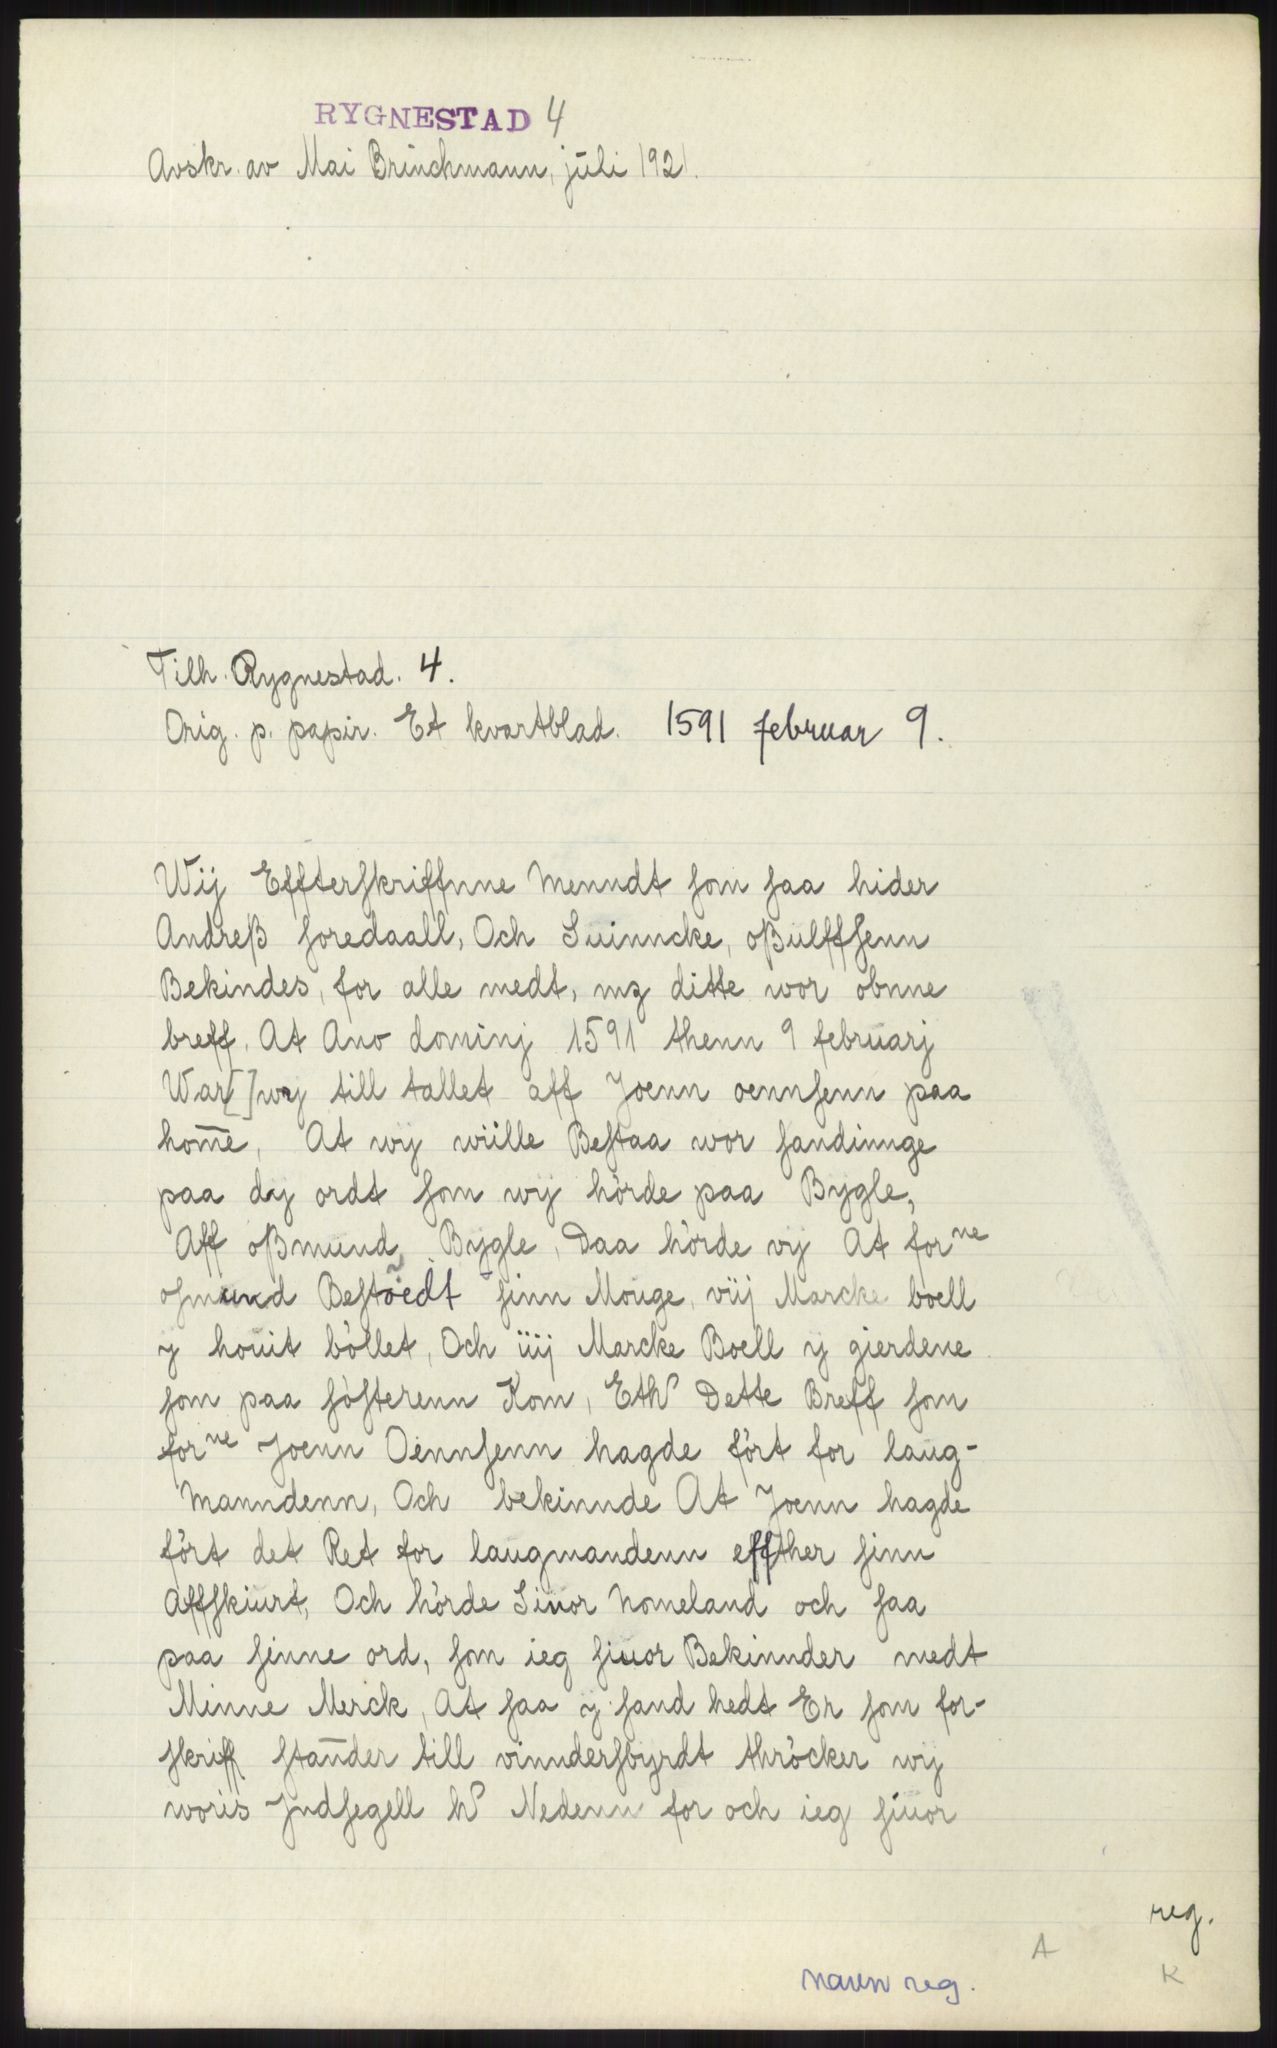 RYGNESTAD 4
Avskr. av Mai Brinchmann, juli 1921.
Tilh. Rygnestad. 4.
Orig. p. papir. Et kvartblad. 1591 februar 9.
Wij Effterſkriffnne Menndt ſom ſaa hider
Andreß ſoredaall, Och Suinncke, oßulffſenn
Bekindes, for alle medt, mꝫ ditte wor obnne
breff. At Ano dominj 1591 thenn 9 februarj
War[] wy till tallet aff Joenn oennſenn paa
hom̅e, At wy wiille Beſtaa wor ſandinnge
paa dy ordt ſom wij hörde paa Bygle,
Aff oßmund Bygle, Daa hörde vij At forne
oſmund Beſtõedt ſinn Mouge, viij Marcke boell
y houitböllet, Och iiij Marcke Boell y gierdene
ſom paa ſöſterenn Kom, Eth Dette Breff ſom
forne Joenn Oennſenn hagde fört for laug-
Manndenn, Och bekinnde At Joenn hagde
fört det Ret for laugmandenn effther ſinn
Affſkiurt, Och hörde Siuor Nomeland och ſaa
paa ſinne ord, ſom ieg ſiuor Bekinnder medt
Minne Merck, At ſaa y ſand hedt Er ſom for-
ſkriff ſtander till vinnderſbyrdt thröcker wij
woris Jndſegell Nedenn for och ieg ſiuor
reg.
A
K
navn reg.